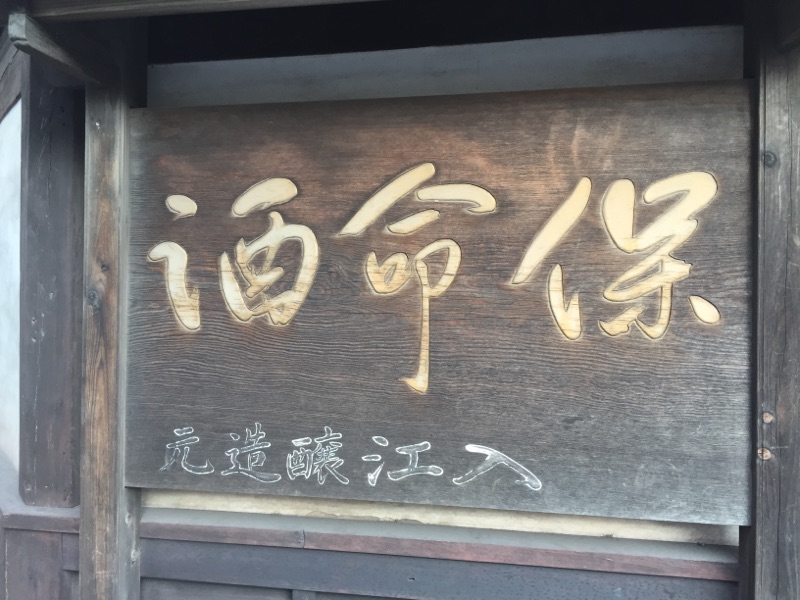 保命酒
入江醸造元